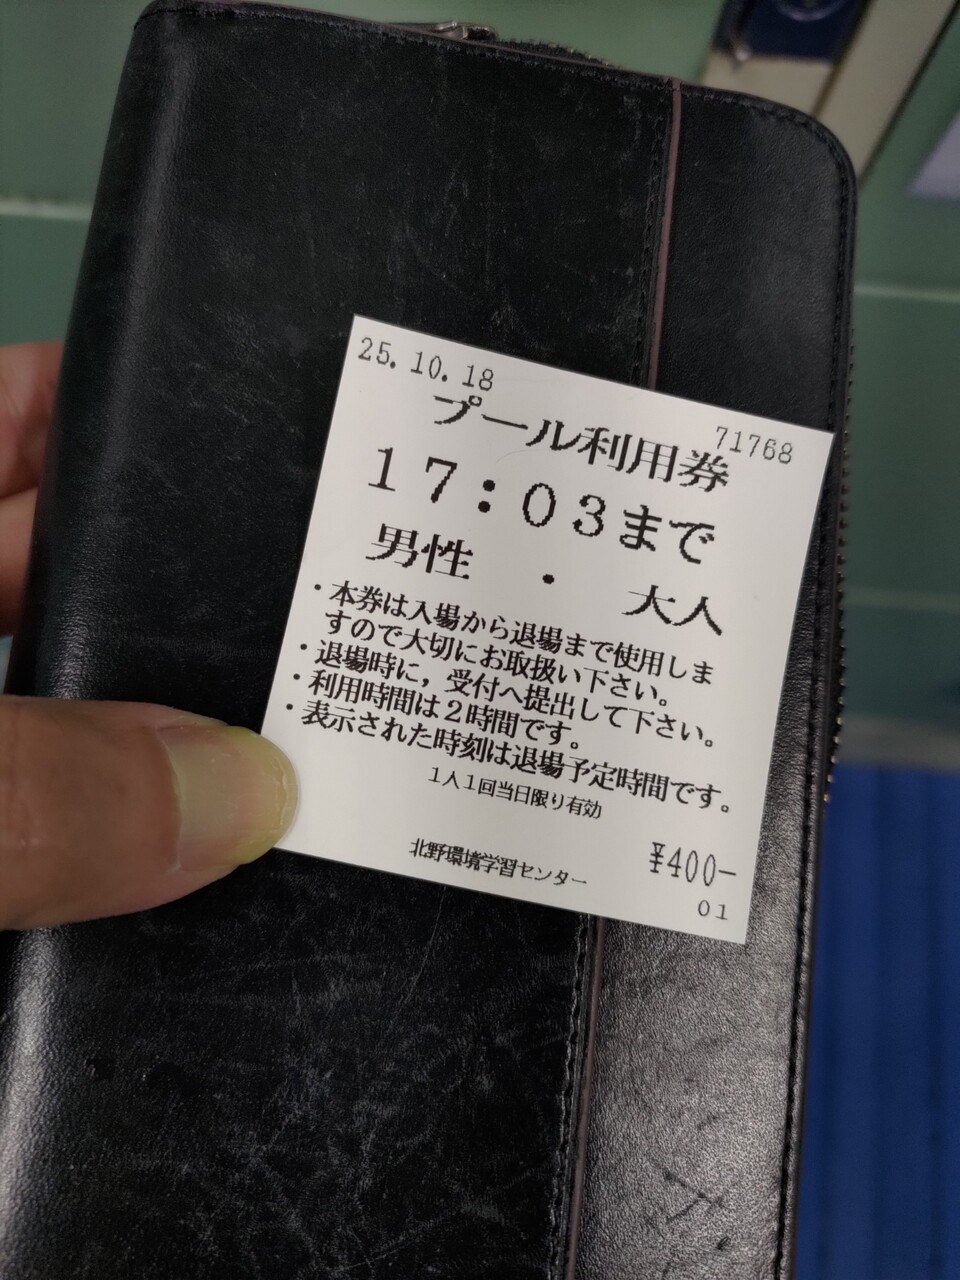 25.10.18
71768
プール利用券
17:03まで
男性 ・ 大人
・本券は入場から退場まで使用しま
すので大切にお取扱い下さい。
・退場時に，受付へ提出して下さい。
・利用時間は２時間です。
・表示された時刻は退場予定時間です。
1人1回当日限り有効
¥400-
北野環境学習センター
01